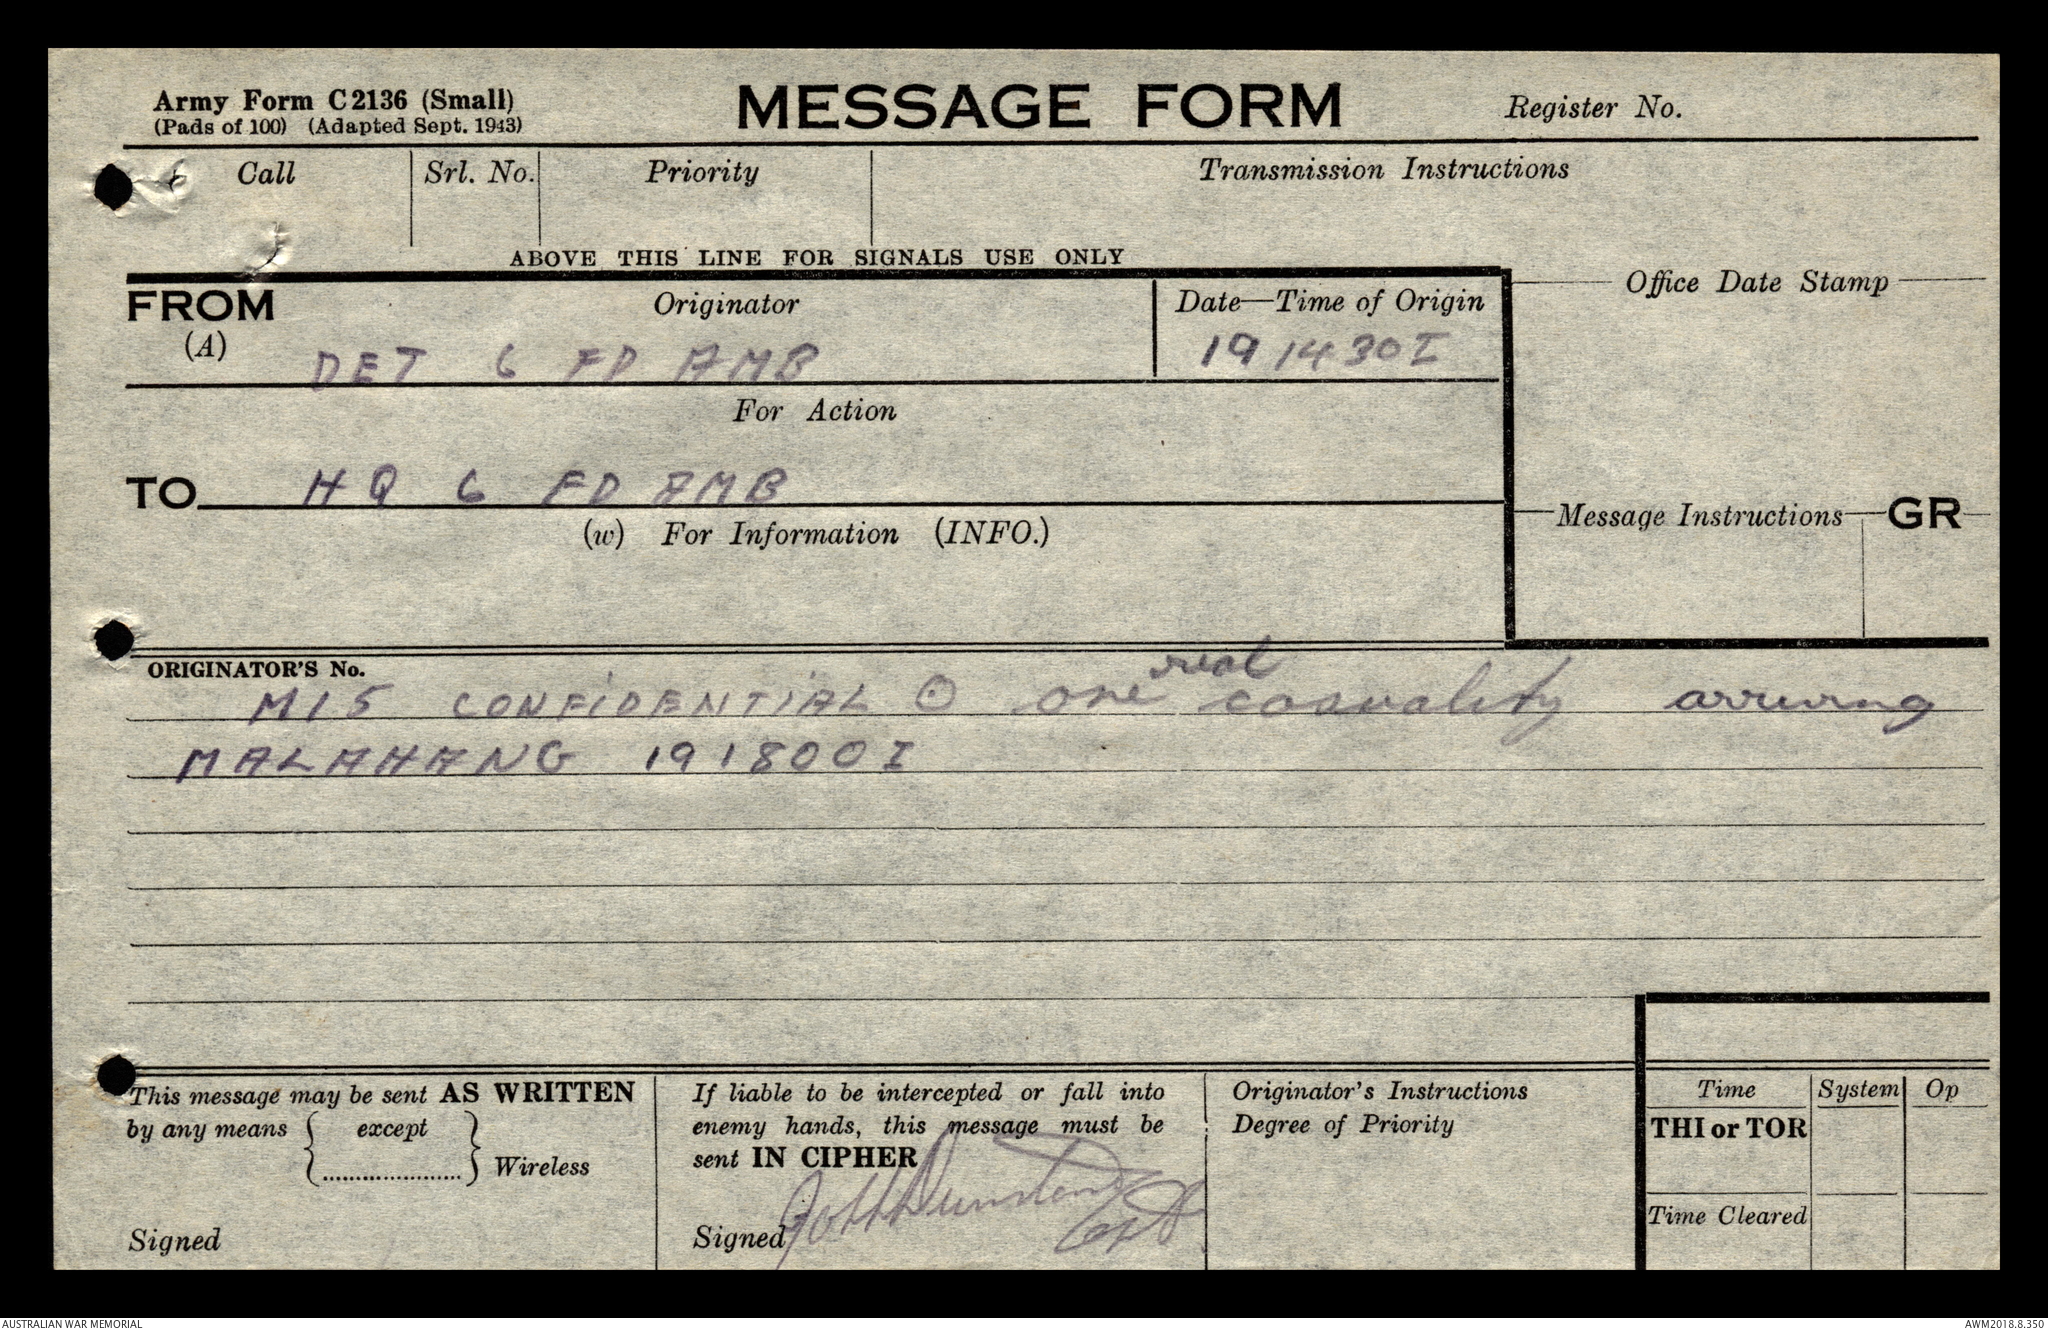 Army Form C2136 (Small)
(Pads of 100) (Adapted Sept. 1943)
MESSAGE FORM
Register No.
Call
Srl. No.
Priority
Transmission Instructions
ABOVE THIS LINE FOR SIGNALS USE ONLY
FROM
(A)
Originator
DET 6 FD AMB
Date—Time of Origin
19 1430 I
Office Date Stamp
For Action
TO HQ 6 FD AMB
(w) For Information (INFO.)
Message Instructions GR
ORIGINATOR'S No.
real
M15 CONFIDENTIAL ⊙ one casuality arriving
MALAHANG 191800 I
This message may be sent AS WRITTEN
by any means { except
..................... } Wireless
Signed
If liable to be intercepted or fall into
enemy hands, this message must be
sent IN CIPHER
Signed Dunstan Capt
Originator's Instructions
Degree of Priority
Time System Op
THI or TOR
Time Cleared
AUSTRALIAN WAR MEMORIAL
AWM2018.8.350